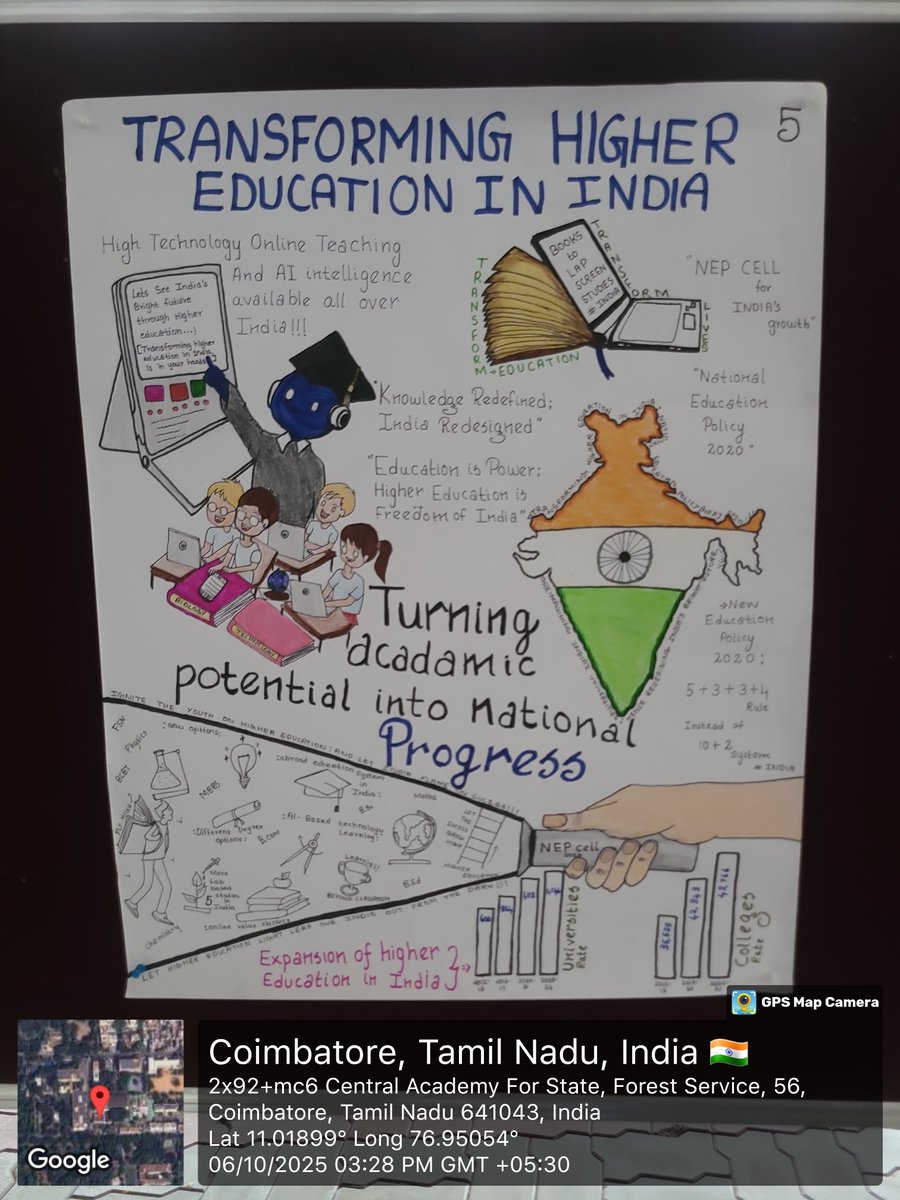 TRANSFORMING HIGHER
EDUCATION IN INDIA
5
High Technology Online Teaching
And AI intelligence
available all over
India!!!
Lets See India's
Bright future
through Higher
education...!
[Transforming higher
education in India
is in your hands]
BOOKS
to
LAP
SCREEN
STUDIES
# INDIA
TRANSFORM
EDUCATION
TRANSFORM
LIVES
"NEP CELL
for
INDIA'S
growth"
"National
Education
Policy
2020"
"Knowledge Redefined;
India Redesigned"
"Education is Power;
Higher Education is
Freedom of India"
BIOLOGY
TECHNOLOGY
→New
Education
Policy
2020;
5+3+3+4
Rule
Instead of
10+2
system
# INDIA
Turning
acadamic
potential into national
Progress
IGINITE THE YOUTH ON HIGHER EDUCATION; AND LET INDIA
FSN
Physics
BCBT
:new options;
MBBS
:abroad education System
in
India:
B.Sc
Maths
:Different Degree
options;
B.com
:AI- Based technology
Learning:
LET
THE
HIGH
HIGHER
EDUCATION
More
Lab
based
studies
in
India
5
Learning
BEYOND CLASSROOM
B.Ed
chemistry
:online value classes;
LET HIGHER EDUCATION LIGHT LEAD OUR INDIA OUT FROM THE DARK!!!
NEP cell
Expansion of higher
Education in India
Universities
Rate
38,525
42,943
48,746
Colleges
Rate
GPS Map Camera
Coimbatore, Tamil Nadu, India
2x92+mc6 Central Academy For State, Forest Service, 56,
Coimbatore, Tamil Nadu 641043, India
Lat 11.01899° Long 76.95054°
06/10/2025 03:28 PM GMT +05:30
Google